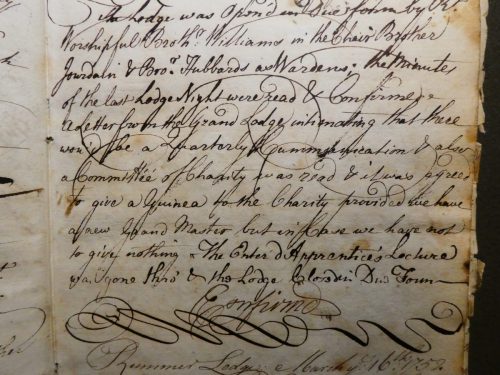 The Lodge was Open'd in Due form by Rt.
Worshipful Brothr. Williams in the Chair Brother
Jourdain & Bror. Hubbards as Wardens, the Minutes
of the last Lodge Night were read & Confirmed
a Letter from the Grand Lodge intimating that there
wou'd be a Quarterly Communication & also
a Committee of Charity was read & it was agreed
to give a Guinea to the Charity provided we have
a new Grand Master but in Case we have not
to give nothing. The Enter'd Apprentice's Lecture
was gone thro' & the Lodge Closed in Due Form
Confirmd
Rummer Lodge March ye 16th 1752